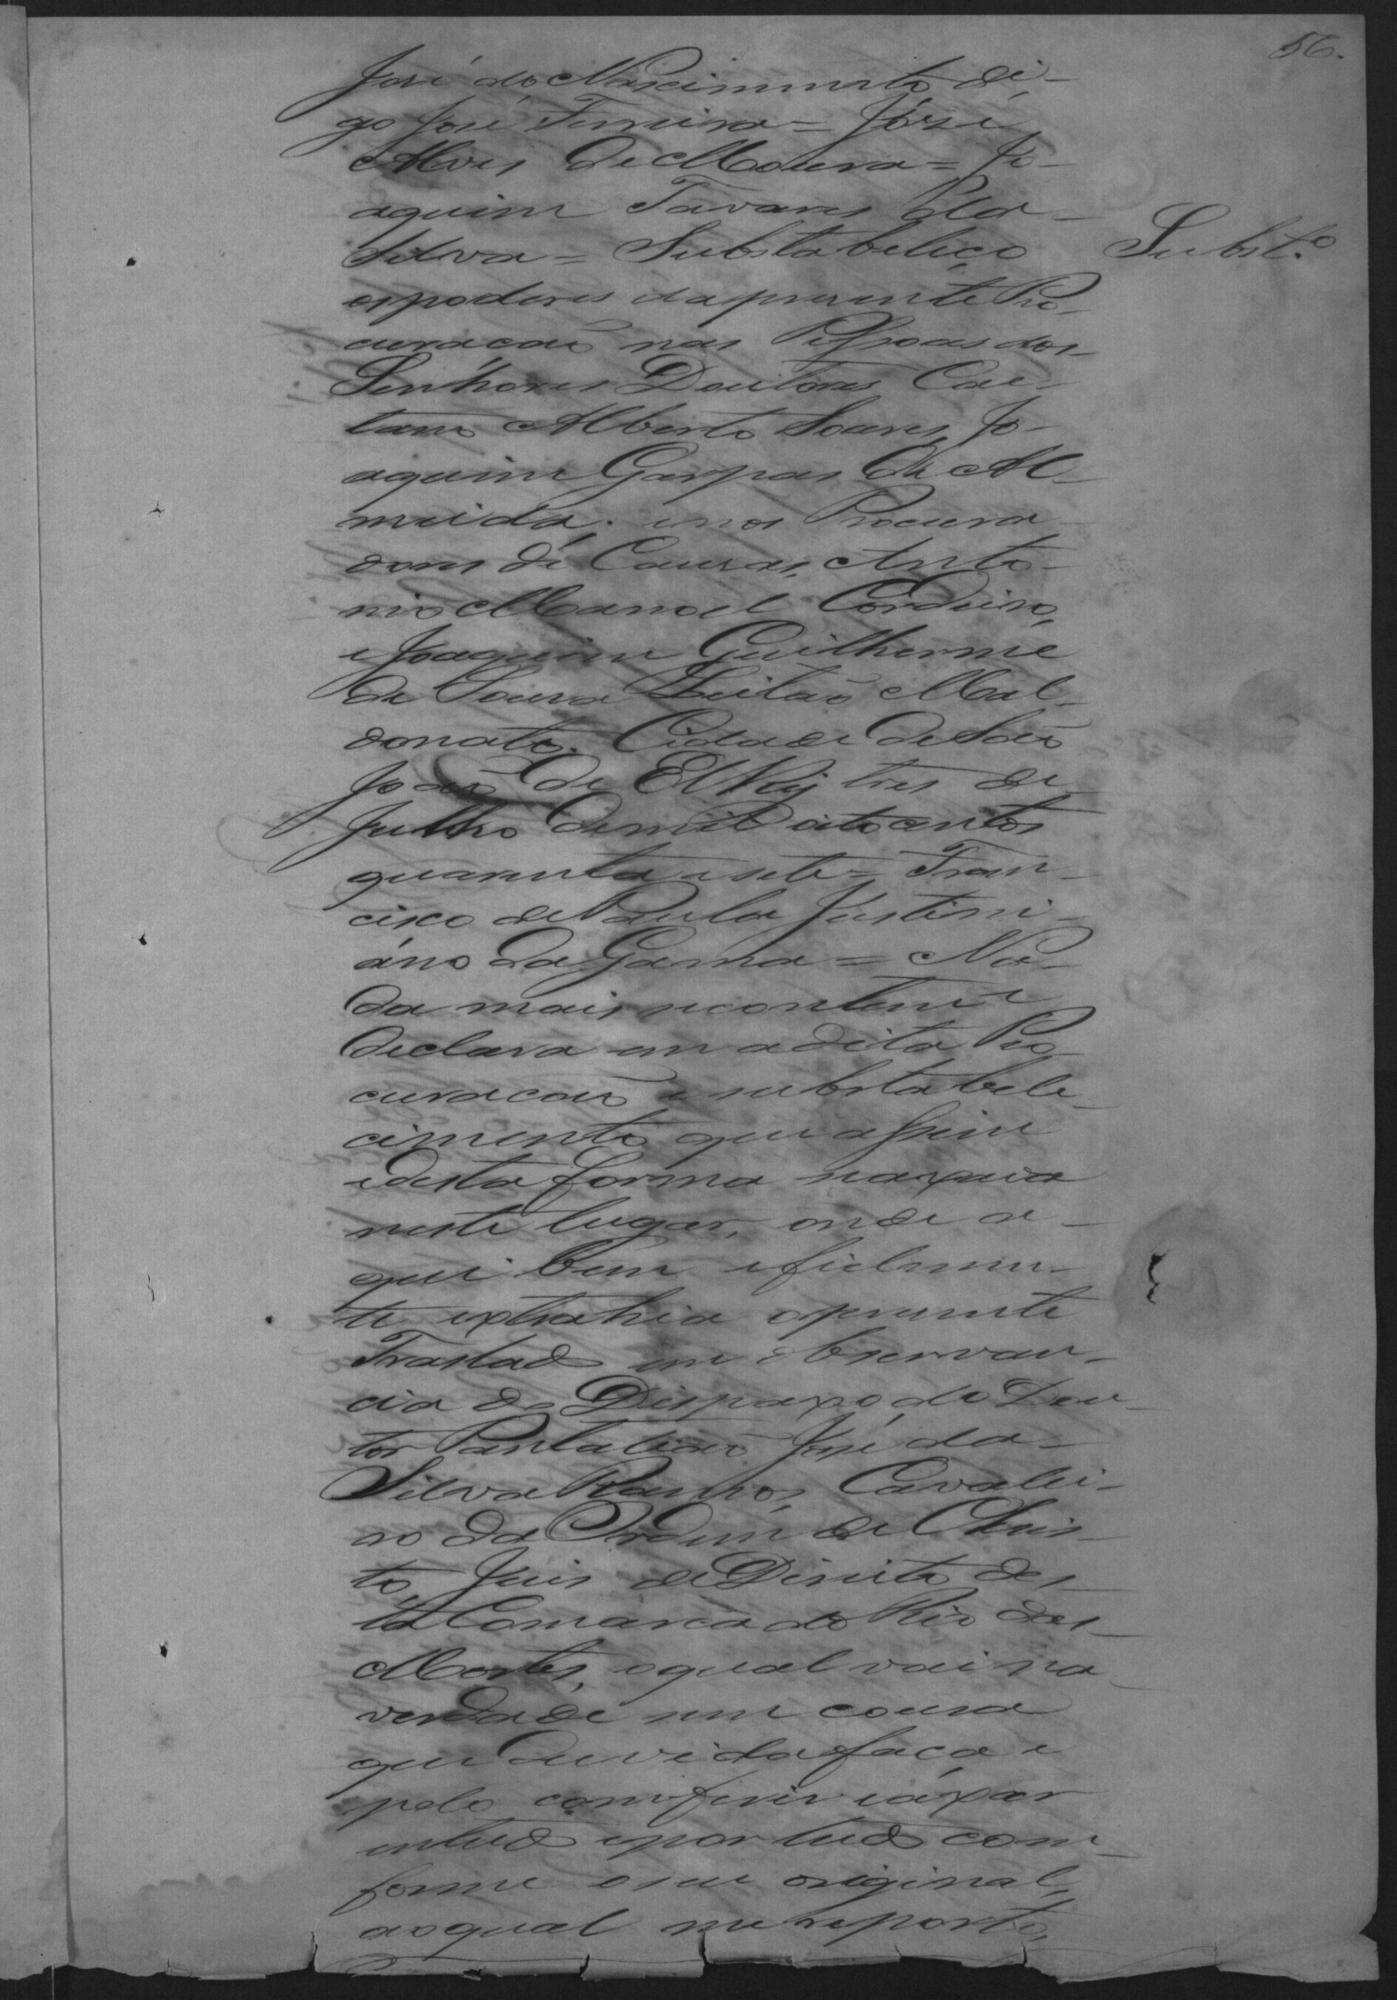 56.
José do Nascimento di-
go José Ferreira = José
Alves de Moura = Jo-
aquim Tavares da
Silva = Substabeleço Subst.º
os poderes da prezente Pro-
curacaõ nas Pessoas dos
Senhores Doutores Cae-
tano Alberto Soares, Jo-
aquim Gaspar de Al-
meida, e nos Procura-
dores de Causas, Anto-
nio Manoel Cordeiro,
e Joaquim Guilherme
de Souza Leitaõ Mal-
donato. Cidade de Saõ
Joaõ de ElRey tres de
Julho de mil oito centos
quarenta e sete = Fran-
cisco de Paula Justini-
ano da Gama = Na-
da mais se contem e
declara em a dita Pro-
curacaõ e substabele-
cimento que assim
e desta forma se axava
neste lugar, onde a-
qui bem e fielmen-
te extrahi o prezente
Traslado em observan-
cia do Dispaxo do Dou-
tor Pantaliaõ José da
Silva Ramos, Cavalei-
ro da Ordem de Chris-
to, Juis de Direito des-
ta Comarca do Rio das
Mortes, o qual vai na
verdade sem couza
que duvida faça e
pelo conferir e axar
em tudo e por tudo com
forme o seu original,
ao qual me reporto,